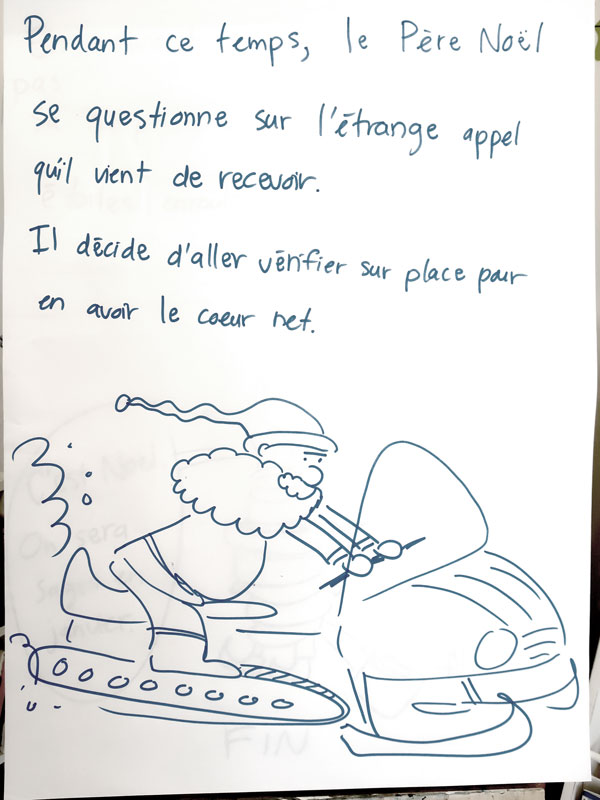 Pendant ce temps, le Père Noël
se questionne sur l'étrange appel
qu'il vient de recevoir.
Il décide d'aller vérifier sur place pour
en avoir le coeur net.
FIN